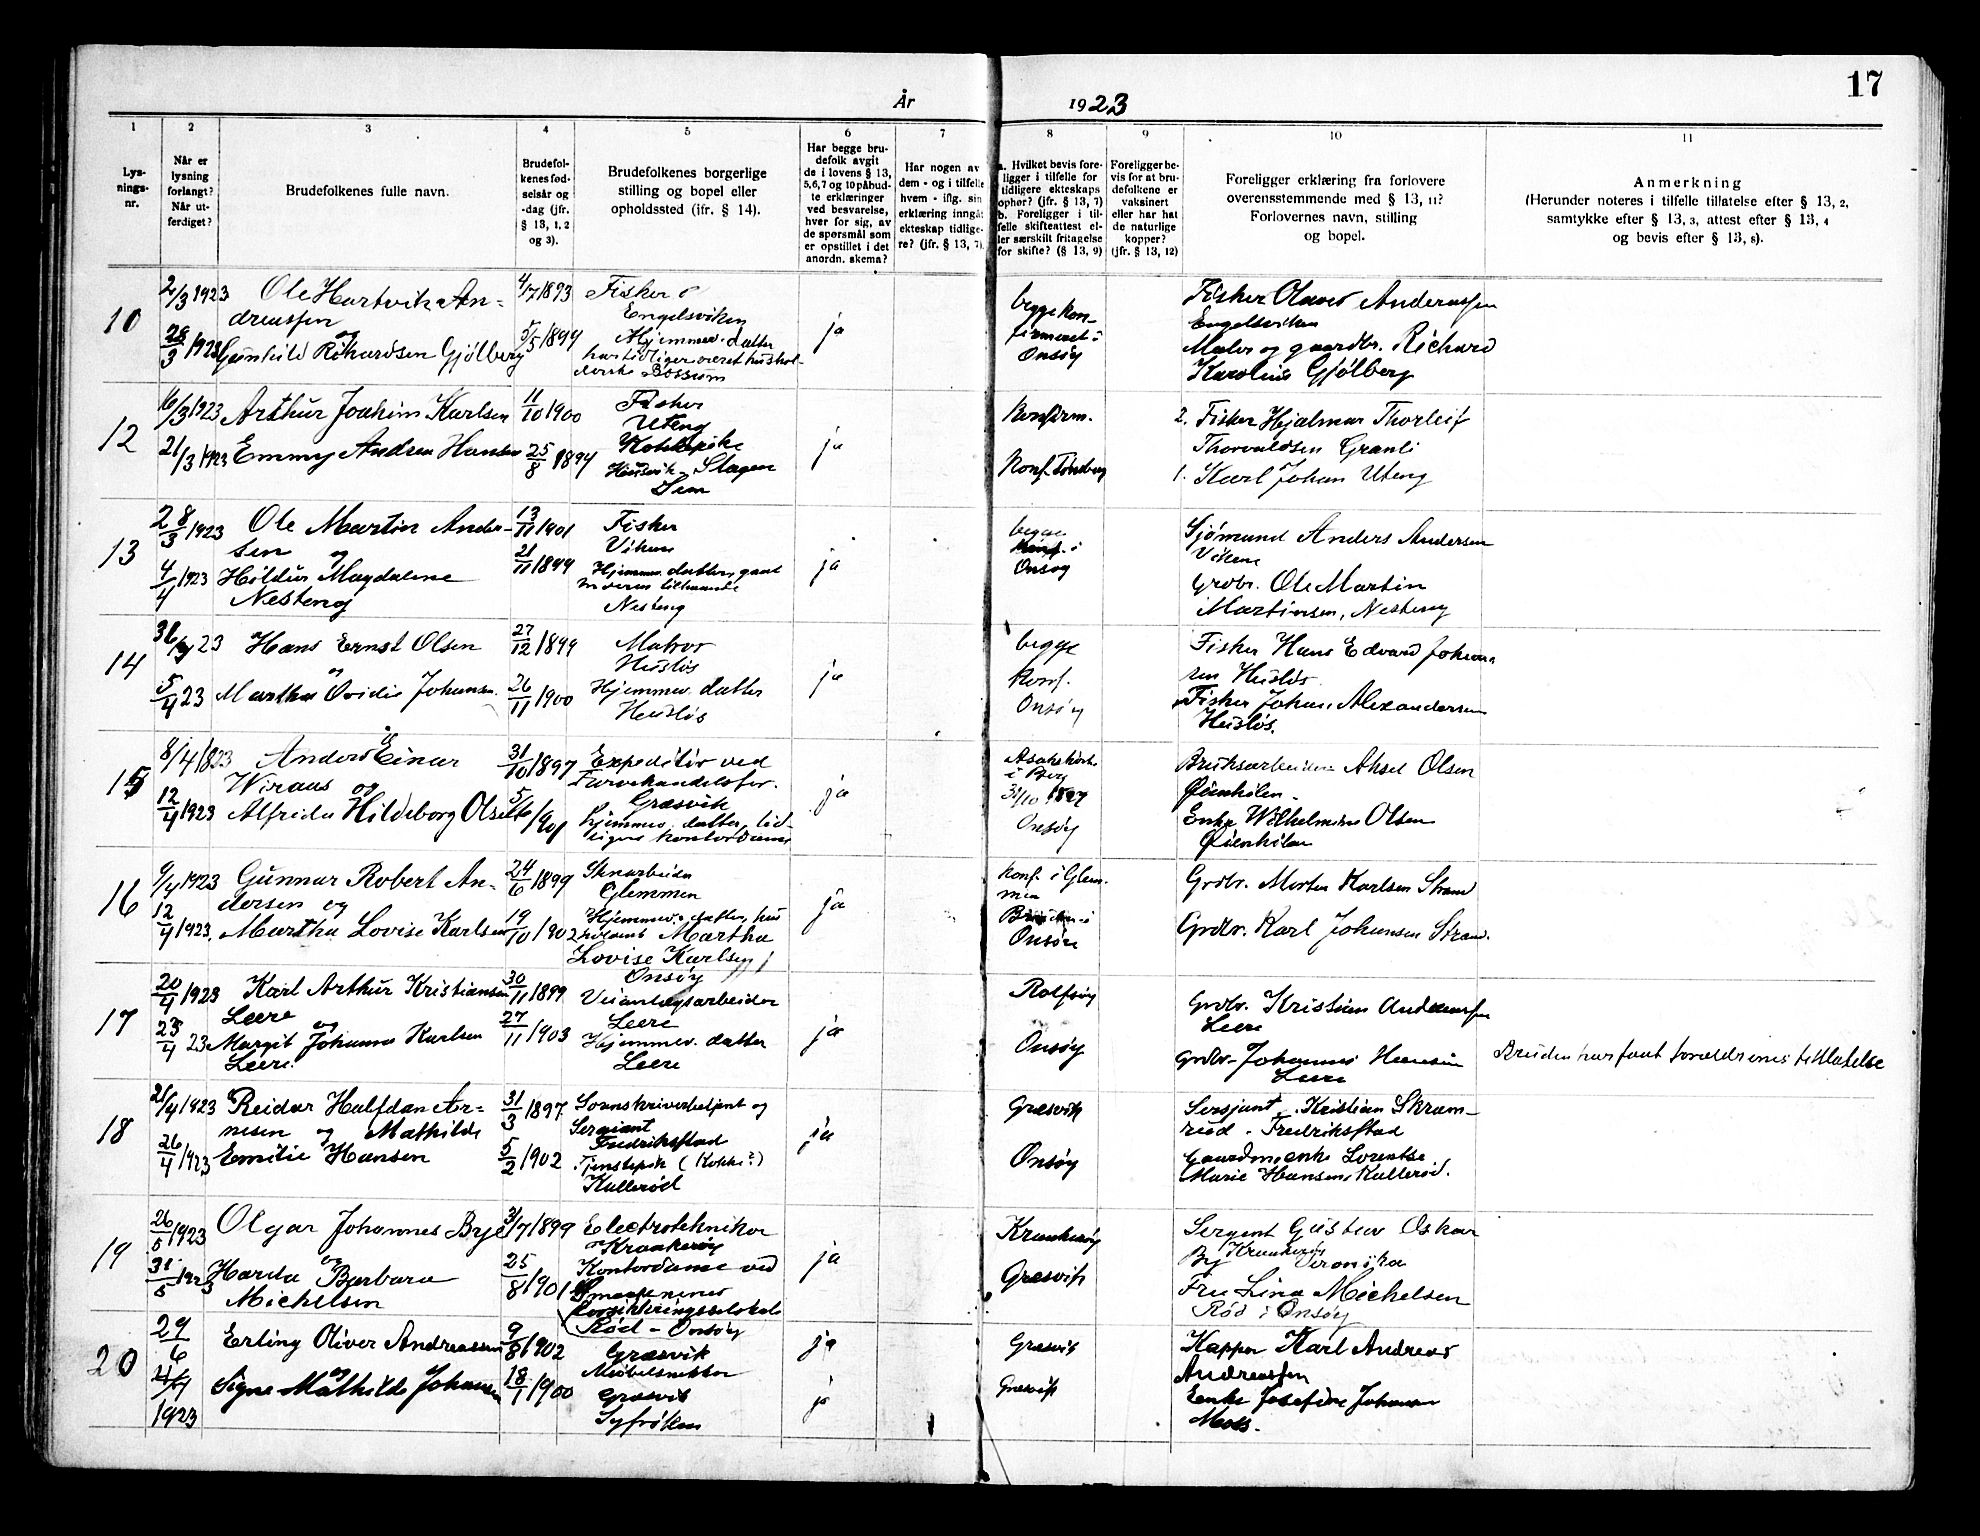 17
År 1923
1 2 3 4 5 6 7 8 9 10 11
Lys-
nings-
nr.
Når er
lysning
forlangt?
Når ut-
ferdiget?
Brudefolkenes fulle navn.
Brudefol-
kenes fød-
selsår og
-dag (jfr.
§ 13, 1, 2
og 3).
Brudefolkenes borgerlige
stilling og bopel eller
opholdssted (ifr. § 14).
Har begge bru-
defolk avgit
de i lovens § 13,
5,6,7 og 10 påbud-
te erklæringer
ved besvarelse,
hver for sig, av
de spørsmål som
er opstillet i det
anordn. skema?
Har nogen av
dem - og i tilfelle
hvem - iflg. sin
erklæring inngåt
ekteskap tidlige-
re? (jfr. § 13, 7)
a. Hvilket bevis fore-
ligger i tilfelle for
tidligere ekteskaps
ophør? (jfr. § 13, 7)
b. Foreligger i til-
felle skifteattest el-
ler særskilt fritagelse
for skifte? (§ 13, 9)
Foreligger be-
vis for at bru-
defolkene er
vaksinert
eller har hat
de naturlige
kopper?
(jfr. § 13, 12)
Foreligger erklæring fra forlovere
overensstemmende med § 13, 11?
Forlovernes navn, stilling
og bopel.
Anmerkning
(Herunder noteres i tilfelle tillatelse efter § 13, 2,
samtykke efter § 13, 3, attest efter § 13, 4
og bevis efter § 13, 8).
10
2/3 1923
28/3 1923
Ole Hartvik An-
dreassen
og
Gunhild Rikardsen Gjølberg
4/7 1893
5/5 1899
Fisker
Engelsviken
Hjemmev. datter
har tidligere været hushol-
derske Bossum
ja
begge kon-
firmeret i
Onsøy
Fisker Olaves Andreassen
Engelsviken
Maler og gaardbr. Richard
Karolius Gjølberg
12
16/3 1923
21/3 1923
Arthur Joachim Karlsen
Emmy Andrea Hansen
11/10 1900
25/8 1894
Fisker
Uteng
Kokkepike
Husvik - Slagen
Sem
ja
Konfirm.
Konf. Tønsberg
2. Fisker Hjalmar Thorleif
Thorvaldsen Granli
1. Karl Johan Uteng
13
28/3 1923
4/4 1923
Ole Martin Ander-
sen og
Hildur Magdalene
Nesteng
13/11 1901
21/11 1899
Fisker
Vikene
Hjemmev. datter, gaat
moderen tilhaande
Nesteng
ja
begge
konf. i
Onsøy
Sjømand Anders Andersen
Vikene
Grdbr. Ole Martin
Martinsen, Nesteng
14
5/4 23
Hans Ernst Olsen
og
Martha Ovidie Johansen
27/12 1899
26/11 1900
Matros
Husløs
Hjemmev. datter
Husløs
ja
begge
Konf.
Onsøy
Fisker Hans Edvard Johan-
sen Husløs
Fisker Johan Alexandersen
Husløs.
15
8/4 1923
12/4 1923
Anders Einar
Wiraas og
Alfrida Hildeborg Olsen
31/10 1897
Expeditør ved
Farvehandelsfor.
Græsvik
hjemmev. datter, tid-
ligere kontordame
ja
i Berg
31/10 1897
Onsøy
Bruksarbeider Aksel Olsen
Øienkilen
Enke Wilhelmine Olsen
Øienkilen
16
9/4 1923
12/4 1923
Gunnar Robert An-
dersen og
Martha Lovise Karlsen
24/6 1899
19/10 1902
Stenarbeider
Glemmen
Hjemmev. datter, hus
Martha
Lovise Karlsen
Onsøy
ja
Konf. i Glem-
men
Bruden i
Onsøy
Grdbr. Morten Karlsen Strand
Grdbr. Karl Johansen Strand.
17
20/4 1923
23/4 23
Karl Arthur Kristiansen
Leere
og
Margit Johanne Karlsen
Leere.
30/11 1899
27/11 1903
Veianlægsarbeider
Leere
Hjemmev. datter
Leere
ja
Rolfsøy
Onsøy
Grdbr. Kristian Andreassen
Leere
Grdbr. Johannes Hansen
Leere
Bruden har faat forældrenes tillatelse
18
25/4 1923
26/4 1923
Reidar Halfdan Ar-
nesen og Mathilde
Emilie Hansen
31/3 1897
5/2 1902
Sorenskriverbetjent og
Sergiant
Fredrikstad
Tjenstepik (Kokke?)
Kallerød
ja
Græsvik
Onsøy
Sersjant Kristian Skram-
rud - Fredrikstad
Gaardmenke Lorentse
Marie Hansen, Kallerød.
19
26/5 1923
31/5 1923
Olgar Johannes Bye
og
Harda Barbara
Michelsen
31/7 1899
25/8 1901
Electrotekniker
Kraakerøy
Kontordame ved
Smaaenenes
Forsikringsselskab
Rød - Onsøy
ja
Kraakerøy
Græsvik
Sergent Gustav Oskar
By Kraakerøy Veronika
Fru Lina Michelsen
Rød i Onsøy
20
29/6
1923
Erling Oliver Andreassen
og
Signe Mathilde Johansen
9/8 1902
18/1 1900
Græsvik
Møbelsnekker
Græsvik
Syfrøken
ja
ja
Græsvik
Græsvik
Kapper Karl Andreas
Andreassen
Enke Josefine Johansen
Moss.